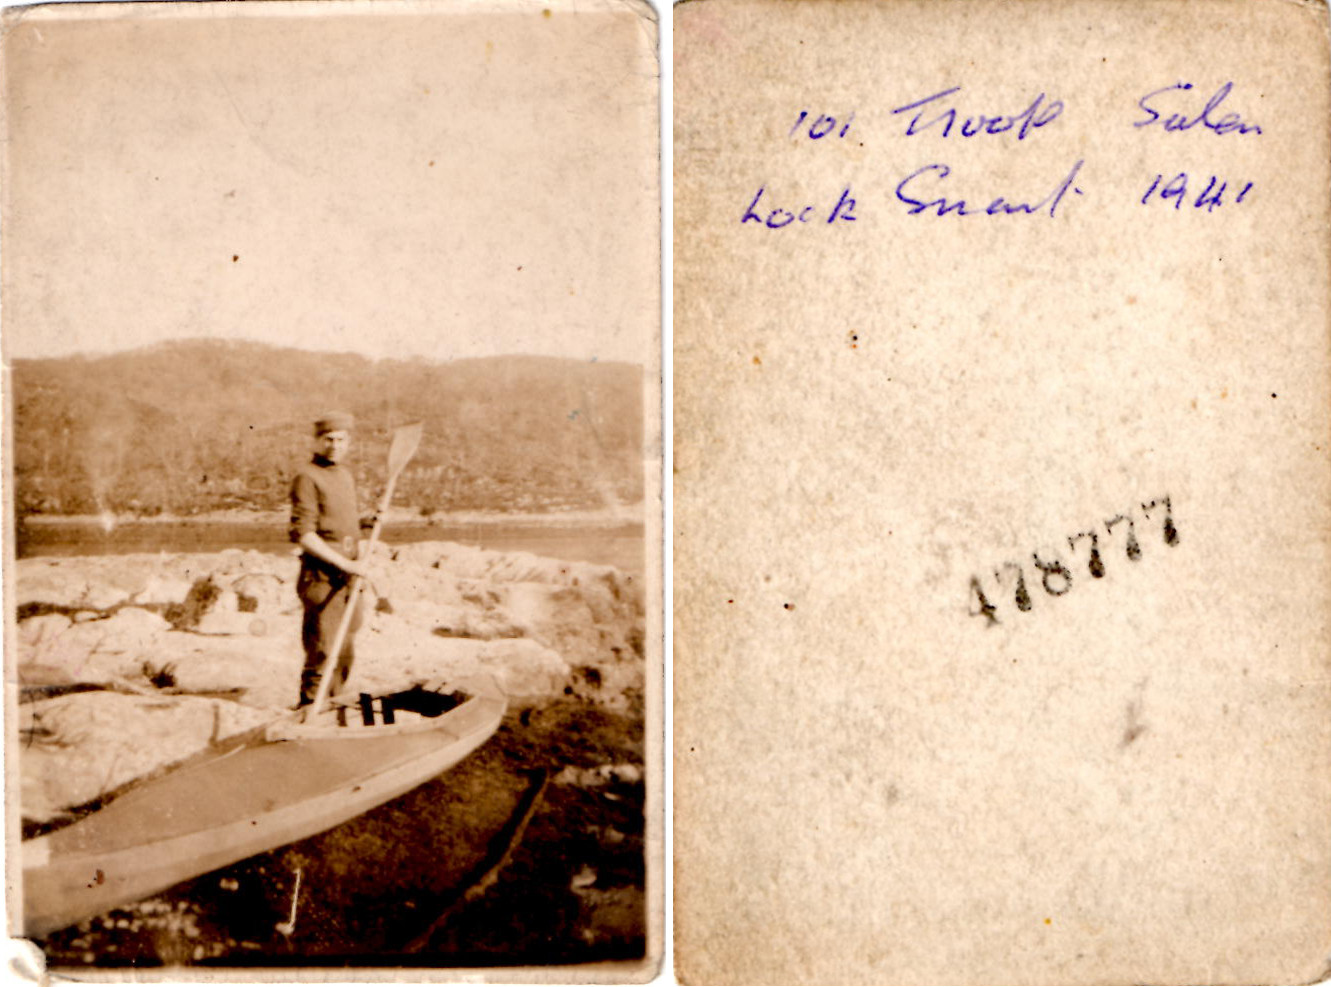 101 Troop Salen
Lock Sunart 1941
478777